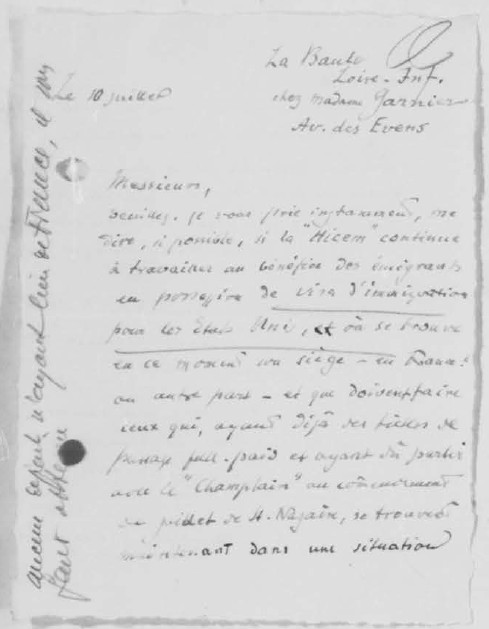 La Baule
Loire-Inf.
Le 10 juillet
chez Madame Garnier
Av. des Evens
Messieurs,
veuillez, je vous prie instamment, me
dire, si possible, si la "Hicem" continue
à travailler au bénéfice des émigrants
en possession de visa d'immigration
pour les Etats Unis, et où se trouve
en ce moment son siège - en France
ou autre part - et que doivent faire
ceux qui, ayant déjà des tickets de
passage full-paid et ayant dû partir
avec le "Champlain" au commencement
de juillet de St. Nazaire, se trouvent
maintenant dans une situation
aucun n'ayant lieu de France, il
faut